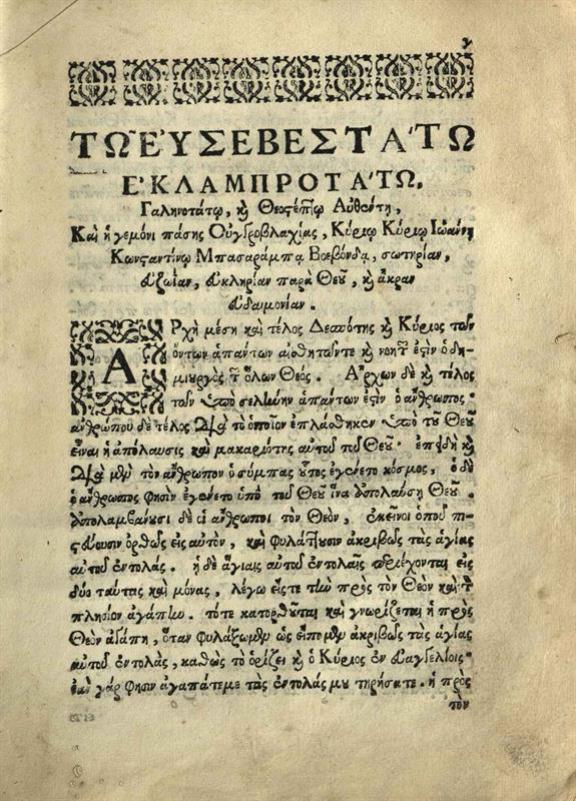 ΤΩ͂ ΕΥ̓ΣΕΒΕΣΤΑ'ΤΩ
Ε'ΚΛΑΜΠΡΟΤΑ'ΤΩ,
Γαληνοτάτῳ, κ̀ Θεοςέπτῳ Αὐθέντῃ,
Καὶ ἡγεμόνι πάσης Οὐγγροβλαχίας, Κυρίῳ Κυρίῳ Ἰωάννῃ
Κωνσταντίνῳ Μπασαράμπᾳ Βοεβόνδᾳ, σωτηρίαν,
εὐζωΐαν, εὐκληρίαν παρὰ Θεοῦ, κ̀ ἄκραν
εὐδαιμονίαν.
ΑΡχὴ μέση καὶ τέλος Δεσπότης κ̀ Κύριος τῶν
ὄντων ἁπάντων αἰσθητῶντε κ̀ νοητῶν ἐςὶν ὁ δη-
μιουργὸς τῶν ὅλων Θεός. Α῎ρχων δὲ κ̀ τέλος
τῶν ὑπὸ σελήνην ἁπάντων ἐςὶν ὁ ἄνθρωπος·
ἀνθρώπου δὲ τέλος διὰ τὸ ὁποῖον ἐπλάσθηκεν ὑπὸ τοῦ Θεοῦ
εἶναι ἡ ἀπόλαυσις καὶ μακαριότης αὐτοῦ τοῦ Θεοῦ· ἐπειδὴ κ̀
διὰ μὲν τὸν ἄνθρωπον ὁ σύμπας οὗτος ἐγένετο κόσμος, ὁ δὲ
ὁ ἄνθρωπος φησὶν ἐγένετο ὑπὸ τοῦ Θεοῦ ἵνα ἀπολαύσῃ Θεοῦ.
ἀπολαμβάνουσι δὲ οἱ ἄνθρωποι τὸν Θεὸν, ἐκεῖνοι ὁποῦ πι-
ςεύουσιν ὀρθῶς εἰς αὐτὸν, καὶ φυλάττουσιν ἀκριβῶς τὰς ἁγίας
αὐτοῦ ἐντολάς. ἡ δὲ ἅγιαις αὐτοῦ ἐντολαῖς περιέχονται εἰς
δύο ταύτας καὶ μόνας, λέγω εἴςτε τὴν πρὸς τὸν Θεὸν καὶ τὸν
πλησίον ἀγάπην. τότε κατορθοῦται καὶ γνωρίζεται ἡ πρὸς
Θεὸν ἀγάπη, ὅταν φυλάξωμεν ὡς εἴπομεν ἀκριβῶς τὰς ἁγίας
αὐτοῦ ἐντολὰς, καθὼς τὸ ὁρίζει κ̀ ὁ Κύριος ἐν εὐαγγελίοις·
ἐὰν γάρ φησιν ἀγαπάτεμε τὰς ἐντολάς μου τηρήσατε. ἡ πρὸς
τὸν